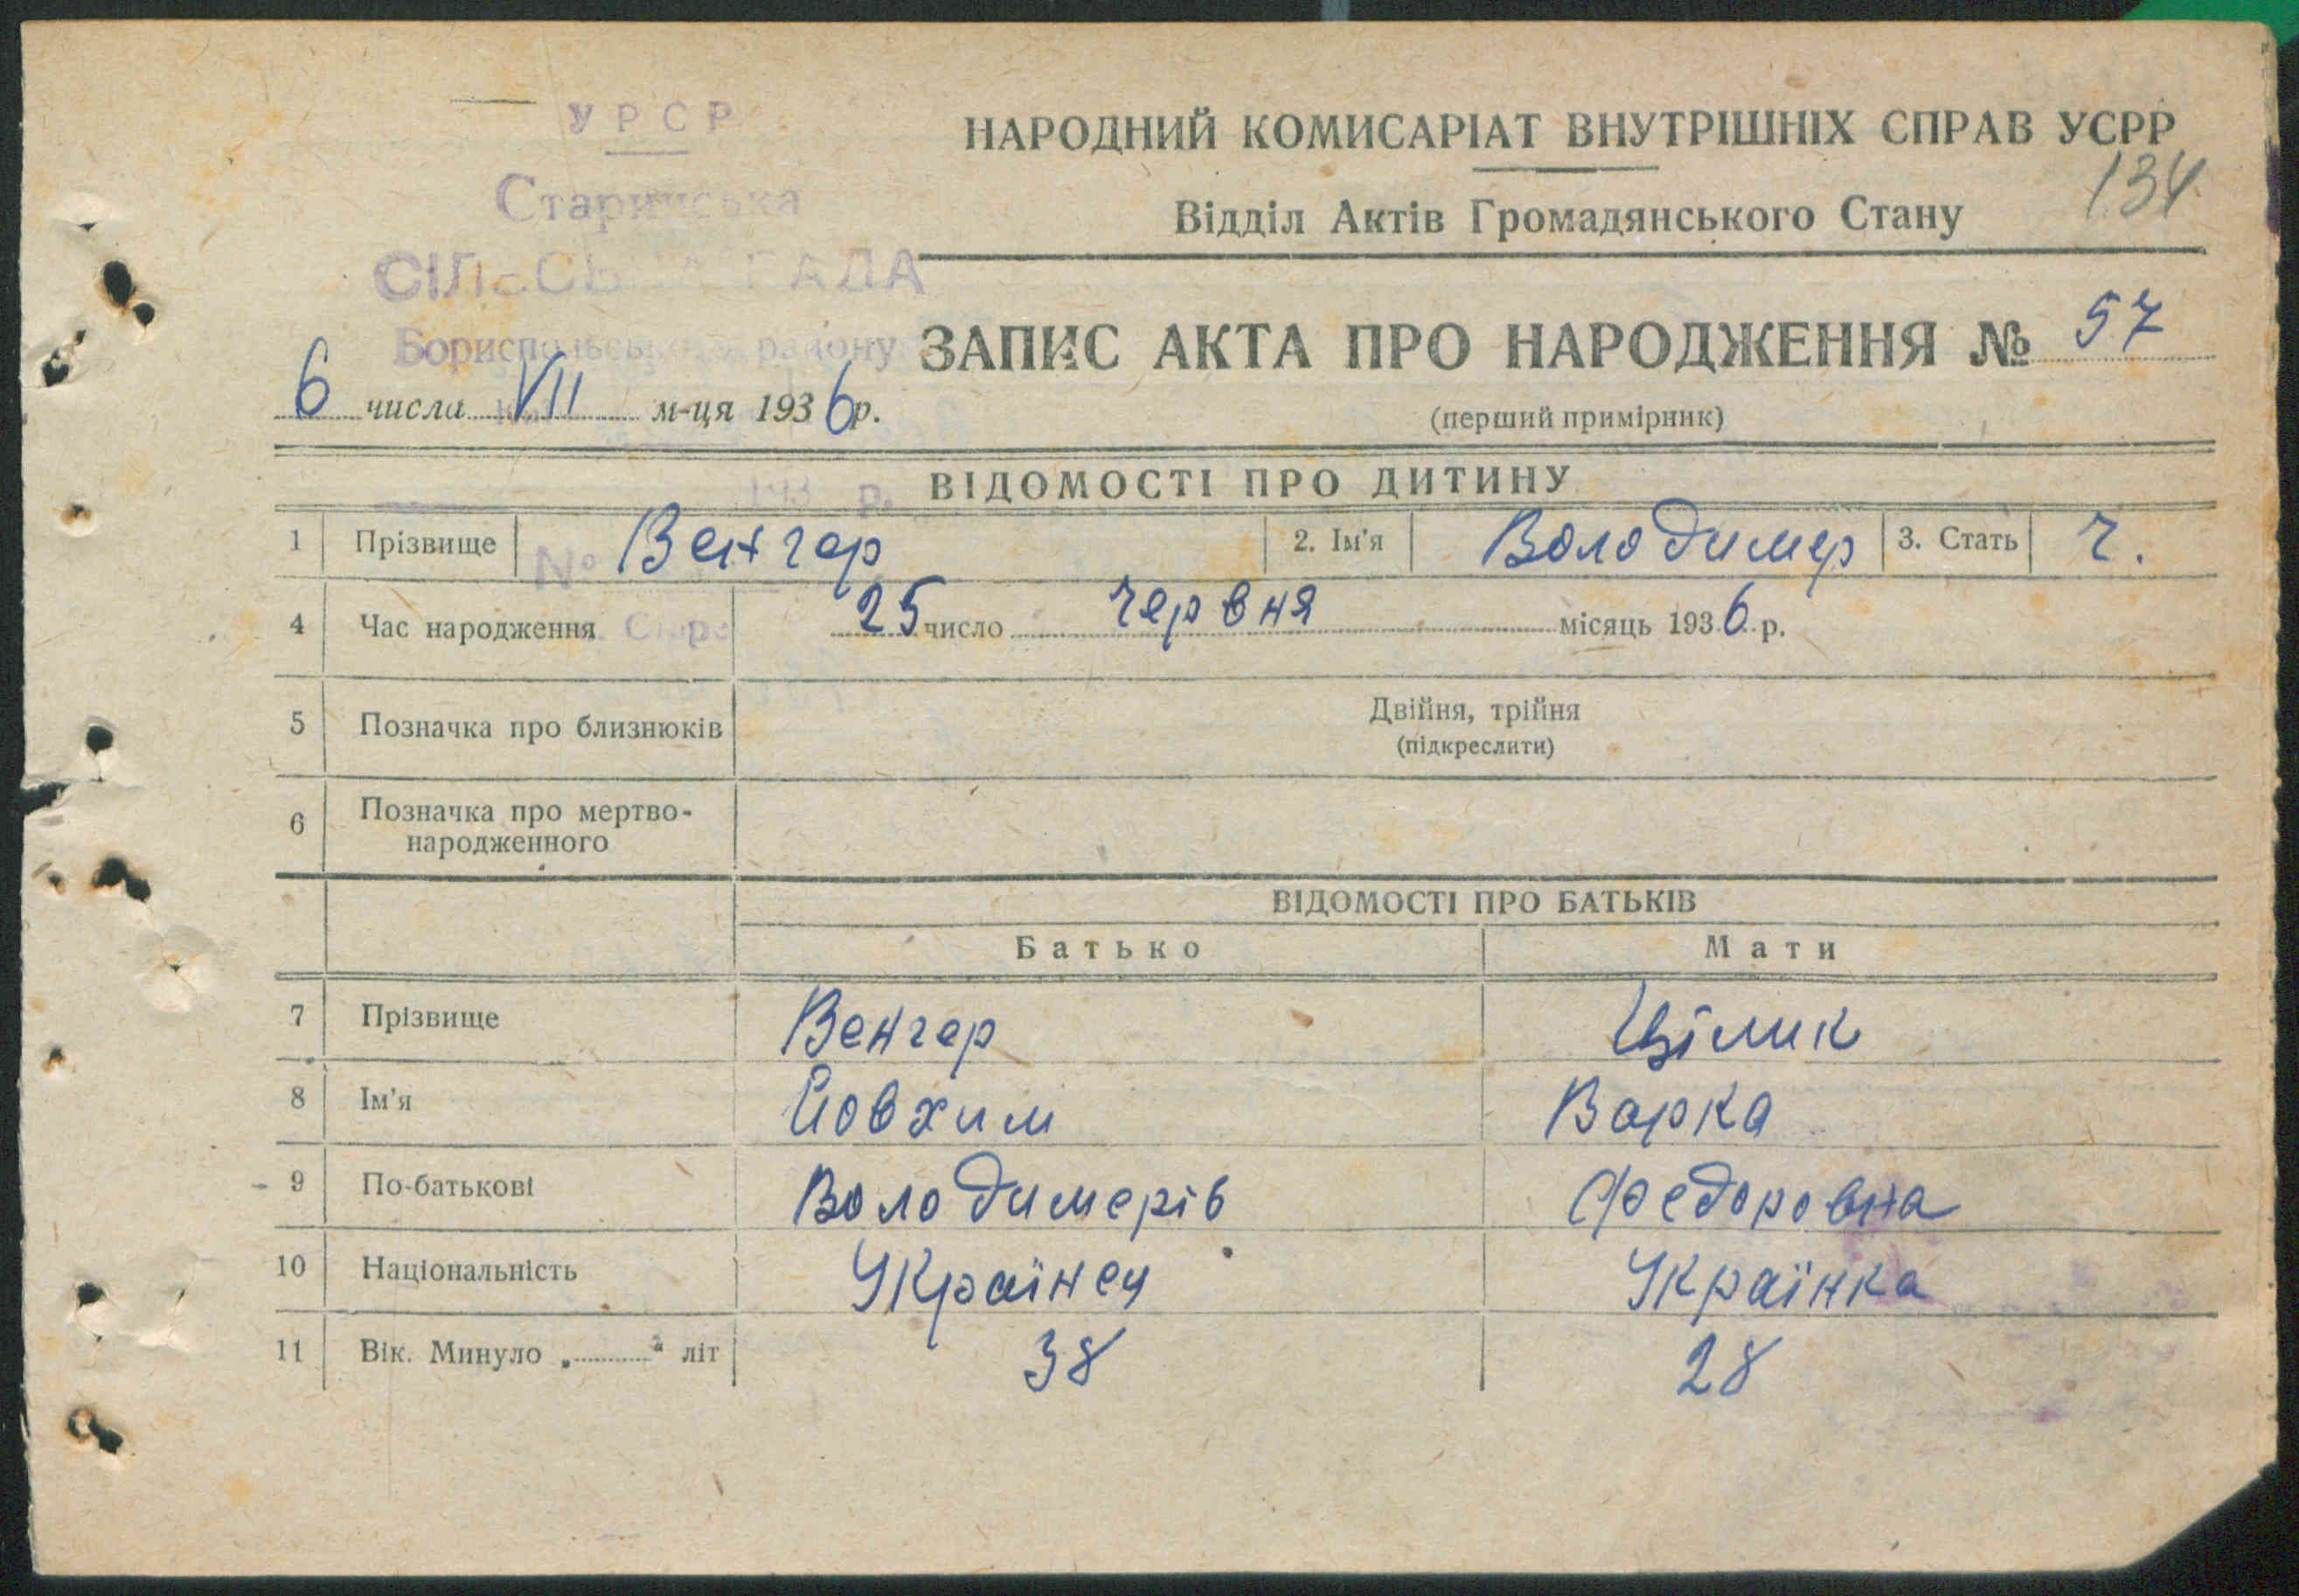 УРСР
Старинська
СІЛЬСЬКА РАДА
Бориспольського району
НАРОДНИЙ КОМИСАРІАТ ВНУТРІШНІХ СПРАВ УСРР
134
Відділ Актів Громадянського Стану
ЗАПИС АКТА ПРО НАРОДЖЕННЯ № 57
6 числа VII м-ця 1936 р.
(перший примірник)
193 р.
ВІДОМОСТІ ПРО ДИТИНУ
1 Прізвище Венгер 2. Ім'я Володимер 3. Стать Ч.
№
4 Час народження 25 число червня місяць 1936 р.
5 Позначка про близнюків Двійня, трійня
(підкреслити)
6 Позначка про мертво-
народженного
ВІДОМОСТІ ПРО БАТЬКІВ
Батько Мати
7 Прізвище Венгер Цілик
8 Ім'я Йовхим Варка
9 По-батькові Володимерів Федоровна
10 Національність Українец Українка
11 Вік. Минуло „ “ літ 38 28